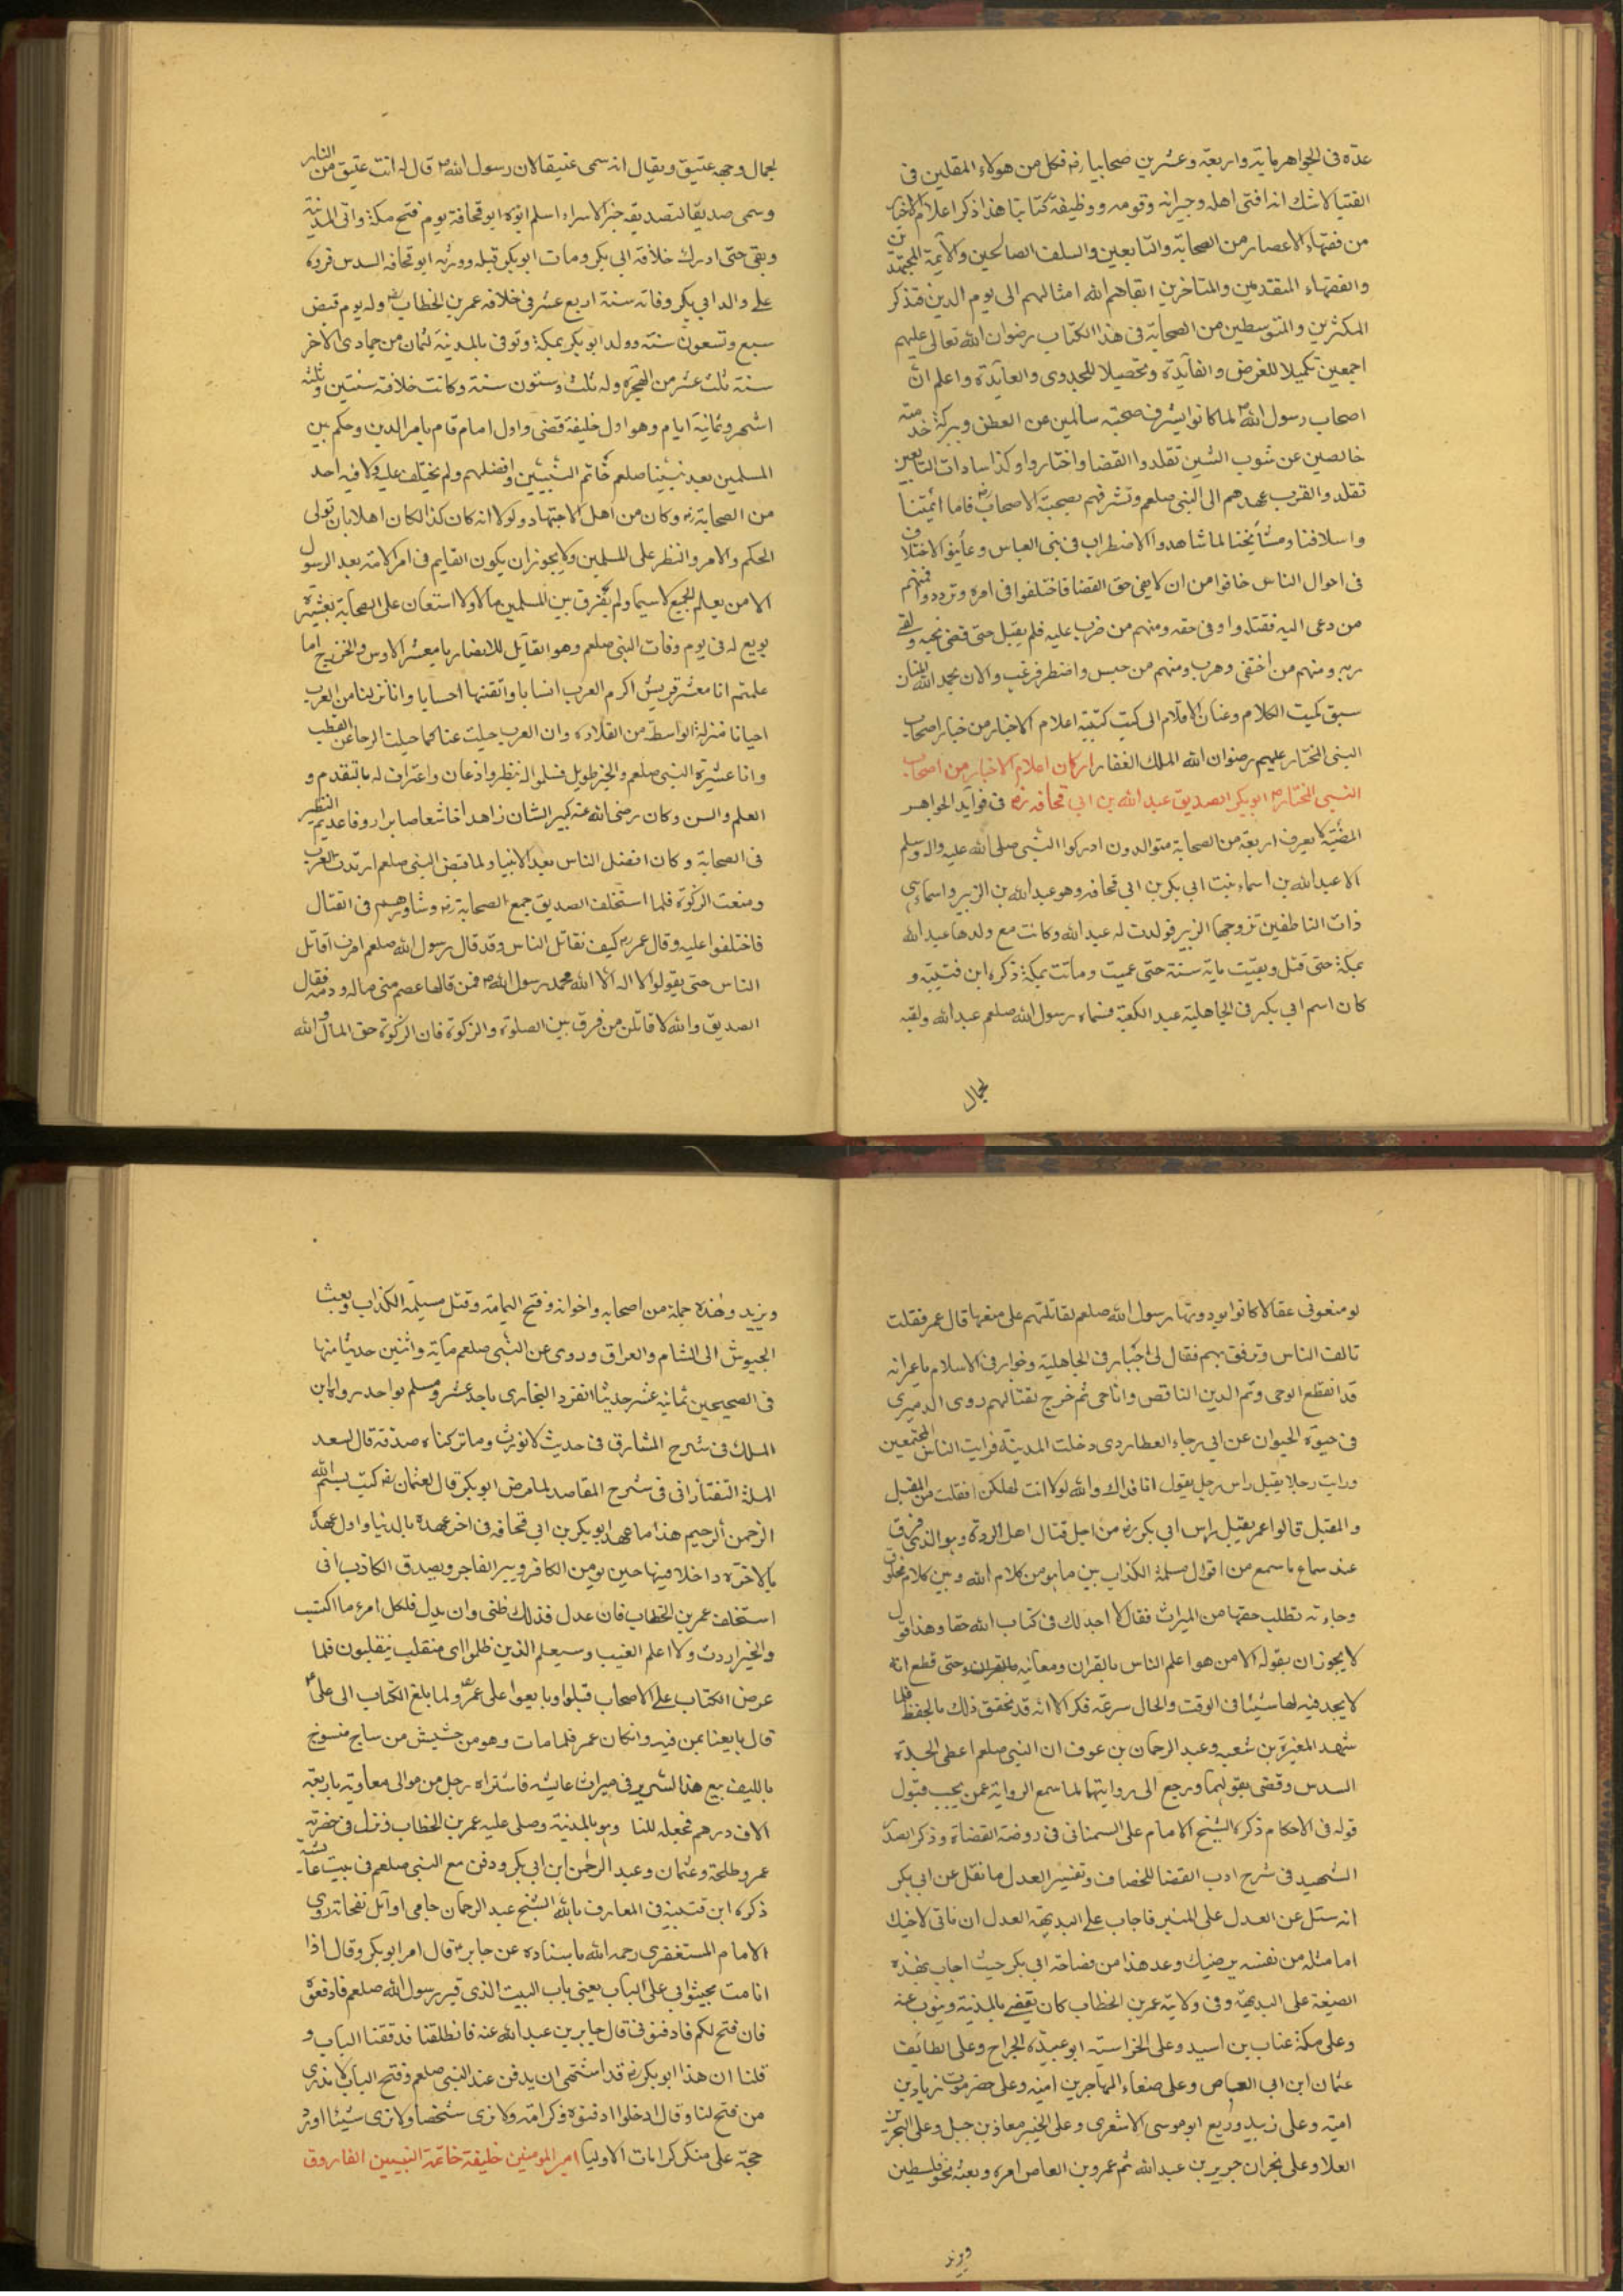 عدّه فى الجواهر ماية واربعة وعشرين صحابيا رضه فكل من هولاء المقلين فى
الفتيا لاشك انه افتى اهله وجيرانه وقومه ووظيفة كتابنا هذا ذكر اعلام الاخيار
من فقهاء الاعصار من الصحابة والتابعين والسلف الصالحين والآيمة المجتهدين
والفقهاء المتقدمين والمتاخرين ابقاهم الله امثالهم الى يوم الدين فنذكر
المكثرين والمتوسطين من الصحابة فى هذا الكتاب رضوان الله تعالى عليهم
اجمعين تكميلا للغرض والفآيدة وتحصيلا للجدوى والعآيدة واعلم انّ
اصحاب رسول الله صم لما كانوا بشرف صحبته سالمين عن الطعن وببركة خدمته
خالصين عن شوب الشين تقلدوا القضا واختاروا وكذا سادات التابعين
تقلد والقرب عهدهم الى النبى صلعم وتشرفهم بصحبة الاصحاب رضه فاما ائمتنا
واسلافنا ومشايخنا لما شاهدوا الاضطراب فى بنى العباس وعاينوا الاختلاف
فى احوال الناس خافوا من ان لا يفى حق القضا فاختلفوا فى امره وترددوا فمنهم
من دعى اليه فقتلدوا وفى حقه ومنهم من ضرب عليه فلم يقبل حتى قضى نحبه ولقى
ربه ومنهم من اختفى وهرب ومنهم من حبس واضطر فرغب والان بحمد الله المنان
سبق كميت الكلام وعنان الاقلام الى كيت كتيبة اعلام الاخيار من خيار اصحاب
النبى المختار عليهم رضوان الله الملك الغفار اركان اعلام الاخيار من اصحاب
النبى المختار صم ابوبكر الصديق عبد الله بن ابى قحافه رضه فى فوايد الجواهر
المضيّة لا يعرف اربعة من الصحابة متوالدون ادركوا النبى صلى الله عليه واله وسلم
الا عبد الله بن اسماء بنت ابى بكر بن ابى قحافه وهو عبد الله بن الزبير واسماء هى
ذات النطاقين تزوجها الزبير فولدت له عبد الله وكانت مع ولدها عبد الله
بمكة حتى قتل وبقيت ماية سنة حتى عميت وماتت بمكة ذكره ابن قتيبه و
كان اسم ابى بكر فى الجاهلية عبد الكعبة فسماه رسول الله صلعم عبد الله ولقبه
لجمال
لجمال وجهه عتيق ويقال انه سمى عتيقا لان رسول الله صم قال له انت عتيق من النار
وسمى صديقا لتصديقه خبر الاسراء اسلم ابوه ابو قحافة يوم فتح مكة واتى المدينة
وبقى حتى ادرك خلافة ابى بكر ومات ابو بكر قبله وورثه ابو قحافه السدس فرده
على والد ابى بكر وفاته سنة اربع عشر فى خلافه عمر بن الخطاب رضه وله يوم قبض
سبع وتسعون سنة وولد ابو بكر بمكة وتوفى بالمدينة لثمان من جمادى الاخر
سنة ثلث عشر من الهجرة وله ثلث وستون سنة وكانت خلافة سنتين وثلثه
اشهر وثمانية ايام وهو اول خليفة قضى واول امام قام بامر الدين وحكم بين
المسلمين بعد نبينا صلعم خاتم النبيين وافضلهم ولم يختلف عليه ولا فيه احد
من الصحابة رضه وكان من اهل الاجتهاد ولولا انه كان كذا لكان اهلا بان تولى
الحكم والامر والنظر على المسلمين ولا يجوز ان يكون القايم فى امر الامة بعد الرسول
الا من يعلم الجميع لا سيما ولم يفرق بين المسلمين مالا ولا استعان على الصحابة بعشيرة
بويع له فى يوم وفات النبى صلعم وهو القايل للانصار يا معشر الاوس والخزرج اما
علمتم انا معشر قريش اكرم العرب انسابا واتقنها احسابا وانا نزلنا من العرب
احيانا منزلة الواسطة من القلادة وان العرب جيلت عنا كما جيلت الرحا عن القطب
وانا عشيرة النبى صلعم والخبر طويل فسلموا له بنظر واذعان واعتراف له بالتقدم و
العلم والسن وكان رضى الله عنه كبير الشان زاهدا خاشعا صابرا روفا عديم النظير
فى الصحابة وكان افضل الناس بعد الانبيا ولما قبض النبى صلعم ارتدت العرب
ومنعت الزكوة فلما استخلف الصديق جمع الصحابة رضه وشاورهم فى القتال
فاختلفوا عليه وقال عمر رضه كيف نقاتل الناس وقد قال رسول الله صلعم امرت اقاتل
الناس حتى يقولوا لا اله الا الله محمد رسول الله صم فمن قالها عصم منى ماله ودمه فقال
الصديق والله لا قاتلن من فرق بين الصلوة والزكوة فان الزكوة حق المال والله
لو منعونى عقالا كانوا يودونها رسول الله صلعم لقاتلتهم على منعها قال عمر فقلت
تالف الناس وترفق بهم فقال لى اجبار فى الجاهلية وخوار فى الاسلام يا عمر انه
قد انقطع الوحى وتم الدين الناقص وانا حى ثم خرج لقتالهم روى الدميرى
فى حيوة الحيوان عن ابى رجاء العطاردى دخلت المدينة فرايت الناس مجتمعين
ورايت رجلا يقبل راس رجل يقول انا فداك والله لولا انت لهلكنا فقلت من المقبل
والمقبل قالوا عمر يقبل راس ابى بكر رضه من اجل قتال اهل الردة وهو الذى فرق
عند سماع ما سمع من اقوال مسلمة الكذاب بين ما هو من كلام الله وبين كلام مخلوق
وجاءته تطلب حقها من الميراث فقال لا اجد لك فى كتاب الله حقا وهذا قول
لا يجوز ان يقوله الا من هو اعلم الناس بالقران ومعانيه بالقران وحتى قطع انه
لا يجد فيه لها شيئا فى الوقت والحال سرعة فكر الا انه قد تحقق ذلك بالحفظ فلما
شهد المغيرة بن شعبه وعبد الرحمان بن عوف ان النبى صلعم اعطى الجدة
السدس وقضى بقولهما ورجع الى روايتهما لما سمع الرواية عمن يجب قبول
قوله فى الاحكام ذكره الشيخ الامام على السمنانى فى روضة القضاة وذكر الصدر
الشهيد فى شرح ادب القضا للخصاف وتفسير العدل ما نقل عن ابى بكر
انه سئل عن العدل على المنبر فاجاب على البديهة العدل ان تاتى لاخيك
اما مثله من نفسه يرضيك وعد هذا من فصاحة ابى بكر حيث اجاب بهذه
الصيغة على البديهة وفى ولاية عمر بن الخطاب كان يقضى بالمدينة وينوب عنه
وعلى مكة عتاب بن اسيد وعلى الخراسية ابو عبيدة الجراح وعلى الطايف
عثمان ابن ابى العباص وعلى صنعاء المهاجر بن اميه وعلى حضرموت زياد بن
اميه وعلى زبيد وربع ابو موسى الاشعرى وعلى الخيبر معاذ بن جبل وعلى البحرين
العلا وعلى نجران جرير بن عبد الله ثم عمرو بن العاص امره وبعثه نحو فلسطين
ويزيد
ويزيد وهذه جملة من اصحابه واخوانه وفتح اليمامة وقتل مسيلمة الكذاب وبعث
الجيوش الى الشام والعراق وروى عن النبى صلعم ماية واثنين حديثا منها
فى الصحيحين ثمانية عشر حديثا انفرد البخارى باحد عشر ومسلم بواحد رواه ابن
الملك فى شرح المشارق فى حديث لا نورث وما تركناه صدقة قال سعد
الملة التفتازانى فى شرح المقاصد لما مرض ابو بكر قال لعثمان رضه كتب بسم الله
الرحمن الرحيم هذا ما عهد ابو بكر بن ابى قحافه فى اخر عهده بالدنيا واول عهده
بالاخرة داخلا فيها حين يومن الكافر ويبر الفاجر ويصدق الكاذب انى
استخلف عمر بن الخطاب فان عدل فذلك ظنى وان بدل فلكل امرء ما اكتسب
والخير اردت ولا اعلم الغيب وسيعلم الذين ظلموا اى منقلب ينقلبون فلما
عرض الكتاب على الاصحاب قبلوا وبايعوا على عمر رضه ولما بلغ الكتاب الى على
قال بايعنا بمن فيه وانكان عمر فلما مات وهو من حشيش من ساج منسوج
بالليف بيع هذا السرير فى ميراث عايشه فاشتراه رجل من موالى معاوية باربعة
الاف درهم فجعله للنا وهو بالمدينة وصلى عليه عمر بن الخطاب ونزل فى حفرته
عمر وطلحة وعثمان وعبد الرحمن ابن ابى بكر ودفن مع النبى صلعم فى بيت عايشه
ذكره ابن قتيبة فى المعارف بالله الشيخ عبد الرحمان جامى اوائل نفحاته روى
الامام المستغفرى رحمه الله باسناده عن جابر رضه قال امر ابو بكر وقال اذا
انا مت فجيئوا بى على الباب يعنى باب البيت الذى قبر رسول الله صلعم فادفعوه
فان فتح لكم فادفنونى قال جابر بن عبد الله عنه فانطلقنا فدققنا الباب و
قلنا ان هذا ابو بكر رضه قد اشتهى ان يدفن عند النبى صلعم وفتح الباب لا ندرى
من فتح لنا وقال ادخلوا ادفنوه وكرامة ولا نرى شخصا ولا نرى شيئا اورد
حجة على منكر كرامات الاوليا امير المومنين خليفة خاتمة النبيين الفاروق